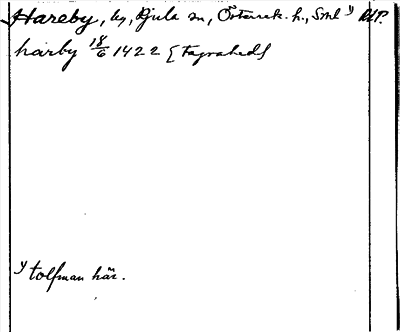 Hareby, by, Kjula sn, Österrek. h., Sml y) RAP.
harby 18/6 1422 {Fagrahed}
y tolfman här.